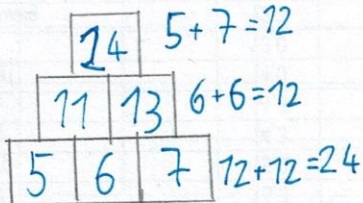 24 5+7=12
11 13 6+6=12
5 6 7 12+12=24